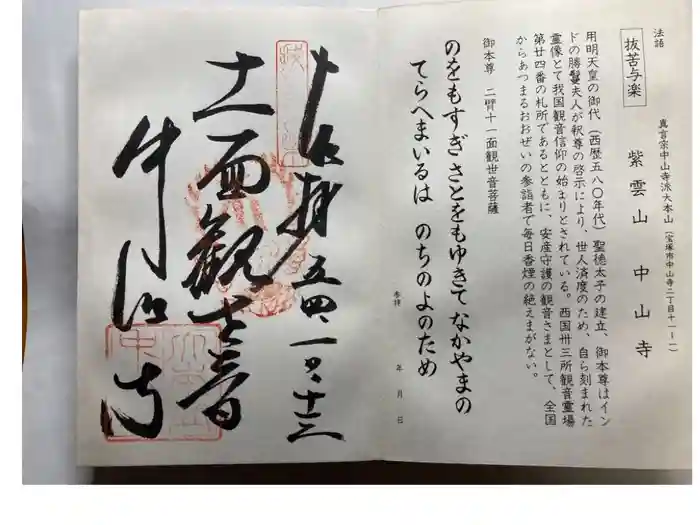 法語
抜苦与楽
真言宗中山寺派大本山（宝塚市中山寺二丁目十一ー一）
紫雲山　中山寺
用明天皇の御代（西歴五八〇年代）聖徳太子の建立、御本尊はイン
ドの勝鬘夫人が釈尊の啓示により、世人済度のため、自ら刻まれた
霊像とて我国観音信仰の始まりとされている。西国卅三所観音霊場
第廿四番の札所であるとともに、安産守護の観音さまとして、全国
からあつまるおおぜいの参詣者で毎日香煙の絶えまがない。
御本尊　二臂十一面観世音菩薩
のをもすぎさとをもゆきてなかやまの
てらへまいるは　のちのよのため
参拝　年　月　日
五四、一〇、十三
十一面観世音
中山寺